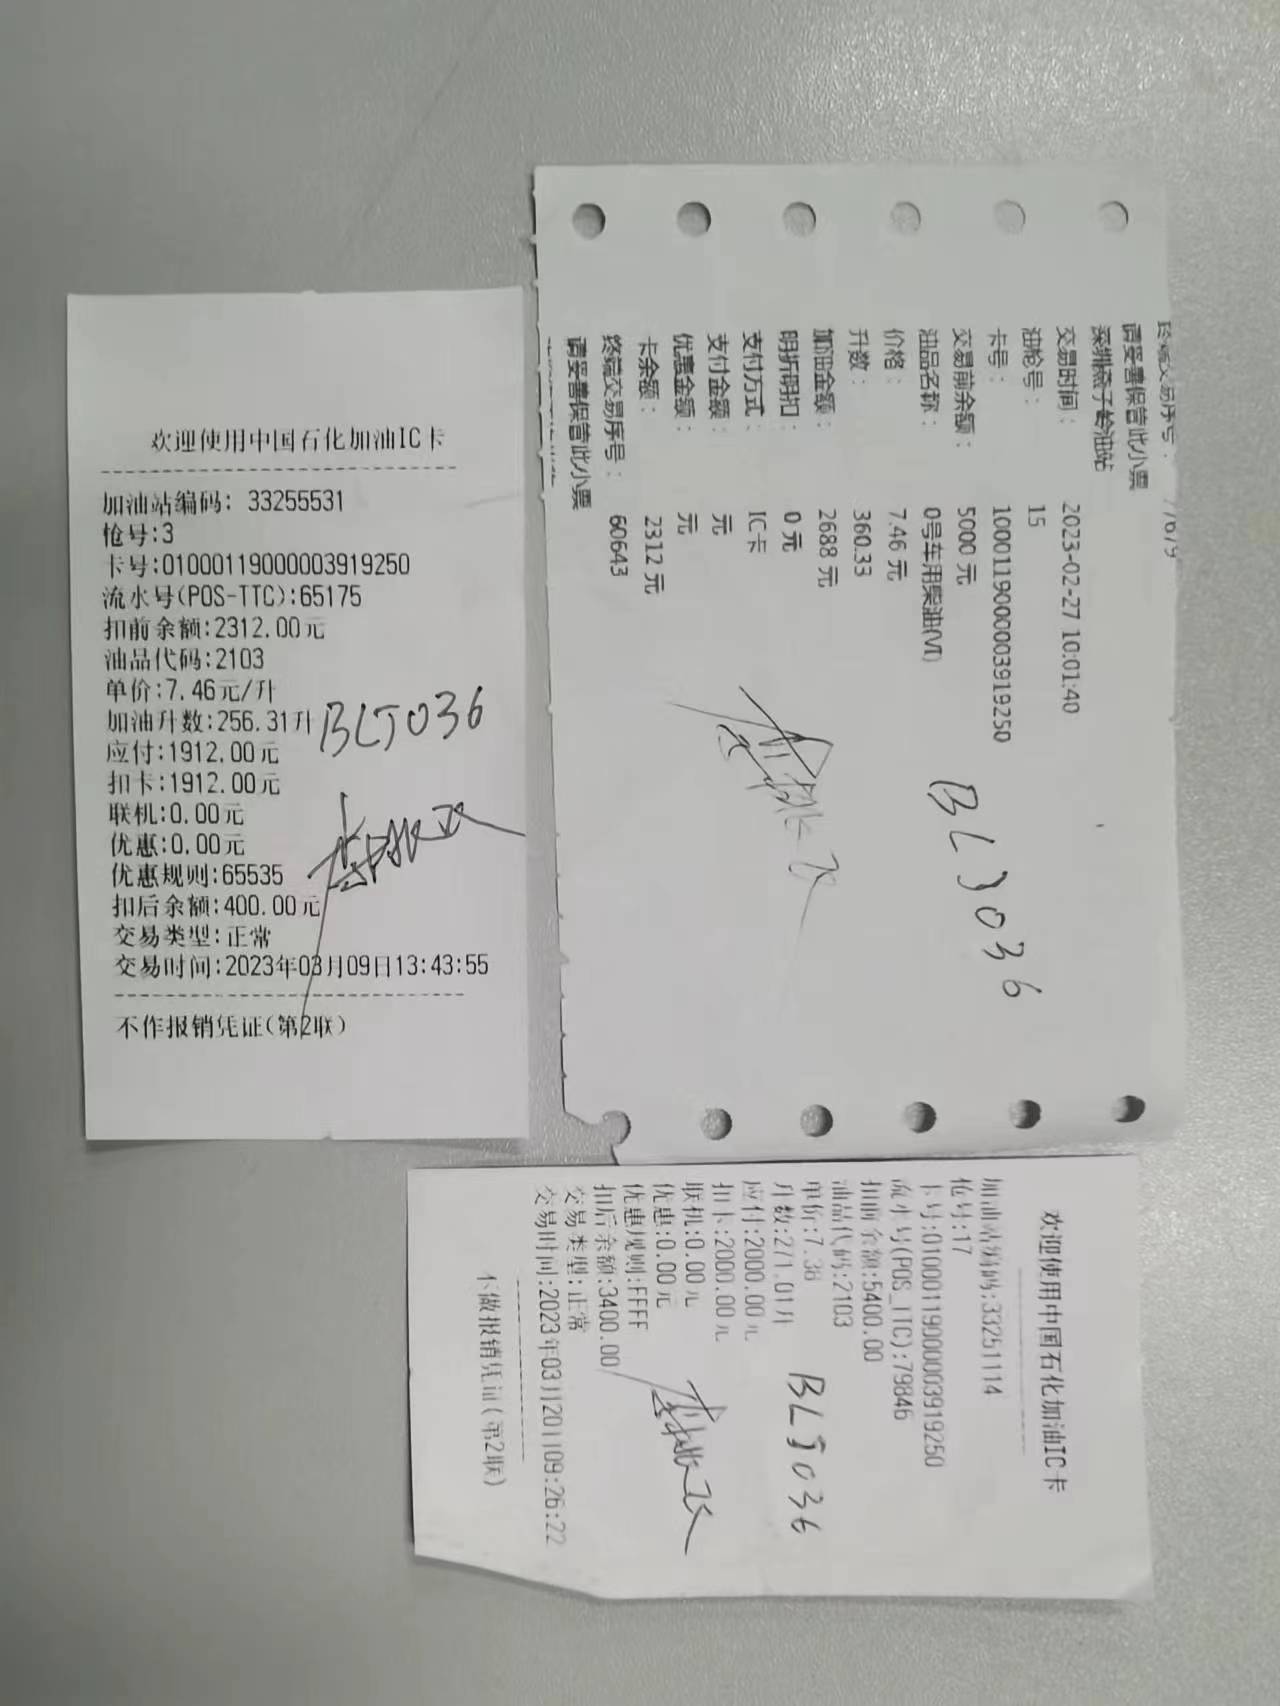 欢迎使用中国石化加油IC卡
加油站编码: 33255531
枪号:3
卡号:01000119000003919250
流水号(POS-TTC):65175
扣前余额:2312.00元
油品代码:2103
单价:7.46元/升
加油升数:256.31升
应付:1912.00元
扣卡:1912.00元
联机:0.00元
优惠:0.00元
优惠规则:65535
扣后余额:400.00元
交易类型:正常
交易时间:2023年03月09日13:43:55
不作报销凭证(第2联)
BLJ036
终端交易序号: 77679
请妥善保管此小票
深圳燕子岭油站
交易时间: 2023-02-27 10:01:40
油枪号: 15
卡号: 1000119000003919250
交易前余额: 5000 元
油品名称: 0号车用柴油(VI)
价格: 7.46 元
升数: 360.33
加油金额: 2688 元
明折明扣: 0 元
支付方式: IC卡
支付金额: 元
优惠金额: 元
卡余额: 2312 元
终端交易序号: 60643
请妥善保管此小票
BLJ036
欢迎使用中国石化加油IC卡
加油站编码:33251114
枪号:17
卡号:01000119000003919250
流水号(POS_TTC):79846
扣前余额:5400.00
油品代码:2103
单价:7.38
升数:271.01升
应付:2000.00元
扣卡:2000.00元
联机:0.00元
优惠:0.00元
优惠规则:FFFF
扣后余额:3400.00
交易类型:正常
交易时间:2023年03月20日09:26:22
不做报销凭证(第2联)
BLJ036